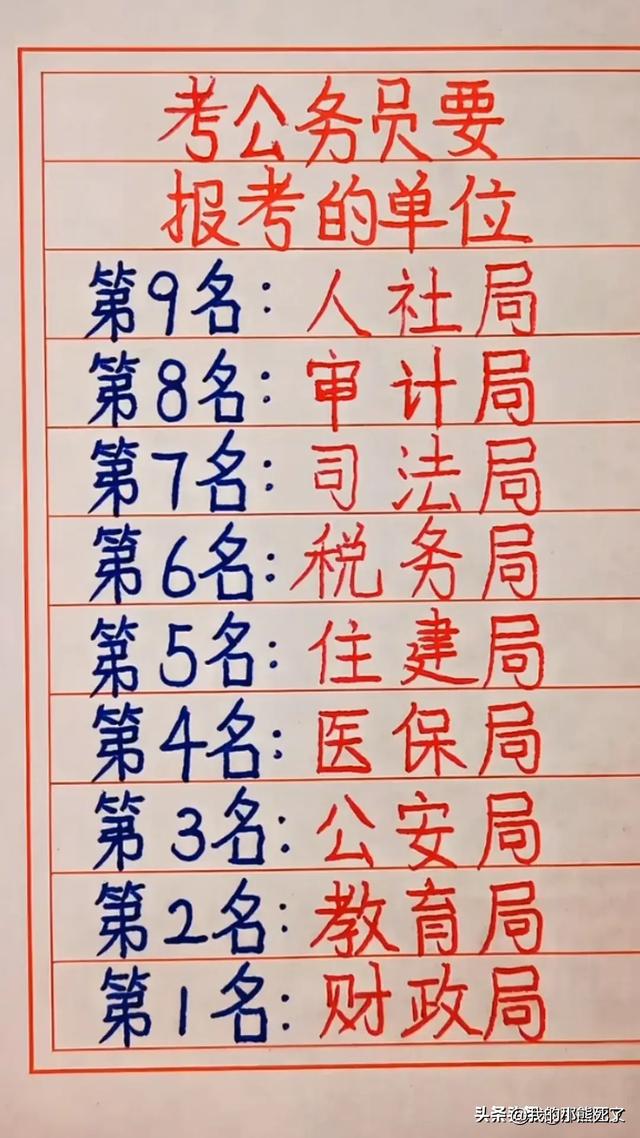 考公务员要
报考的单位
第9名：人社局
第8名：审计局
第7名：司法局
第6名：税务局
第5名：住建局
第4名：医保局
第3名：公安局
第2名：教育局
第1名：财政局
头条 @我的那熊死了